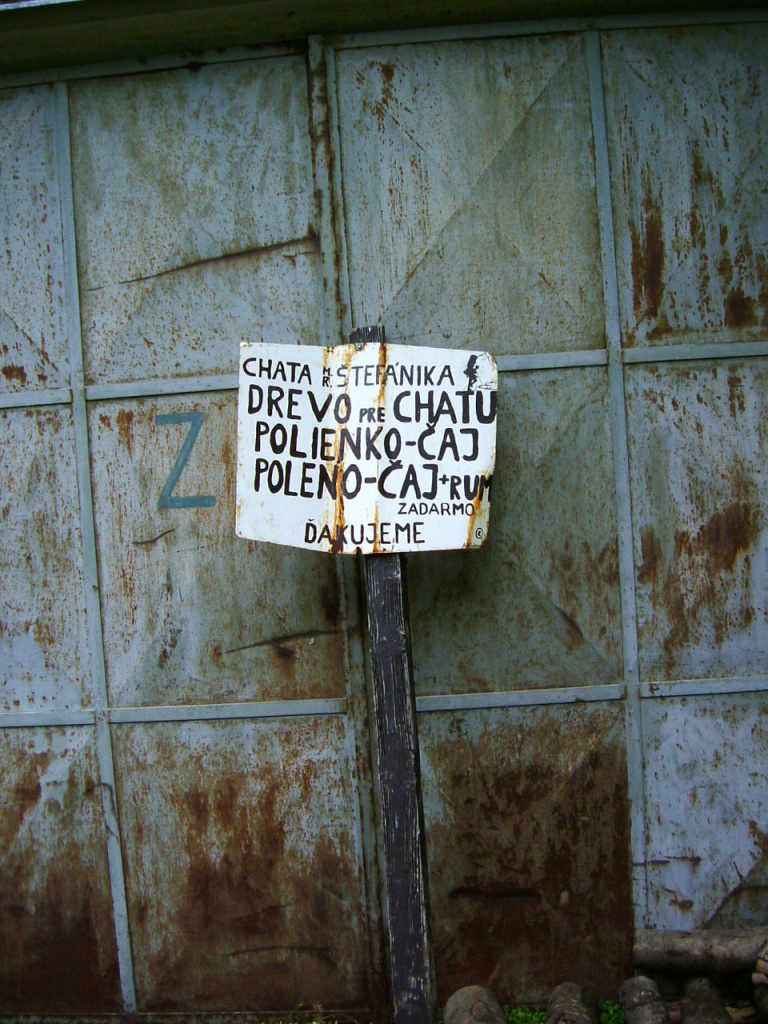 CHATA M.R. ŠTEFÁNIKA
DREVO PRE CHATU
POLIENKO-ČAJ
POLENO-ČAJ+RUM
ZADARMO
ĎAKUJEME
Z